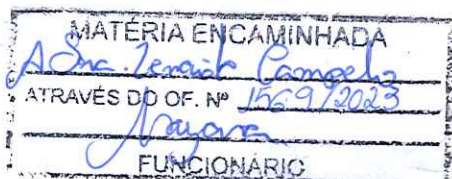 MATÉRIA ENCAMINHADA
A Sra. Zenaide
ATRAVÉS DO OF. Nº 1569/2023
Nayara
FUNCIONÁRIO